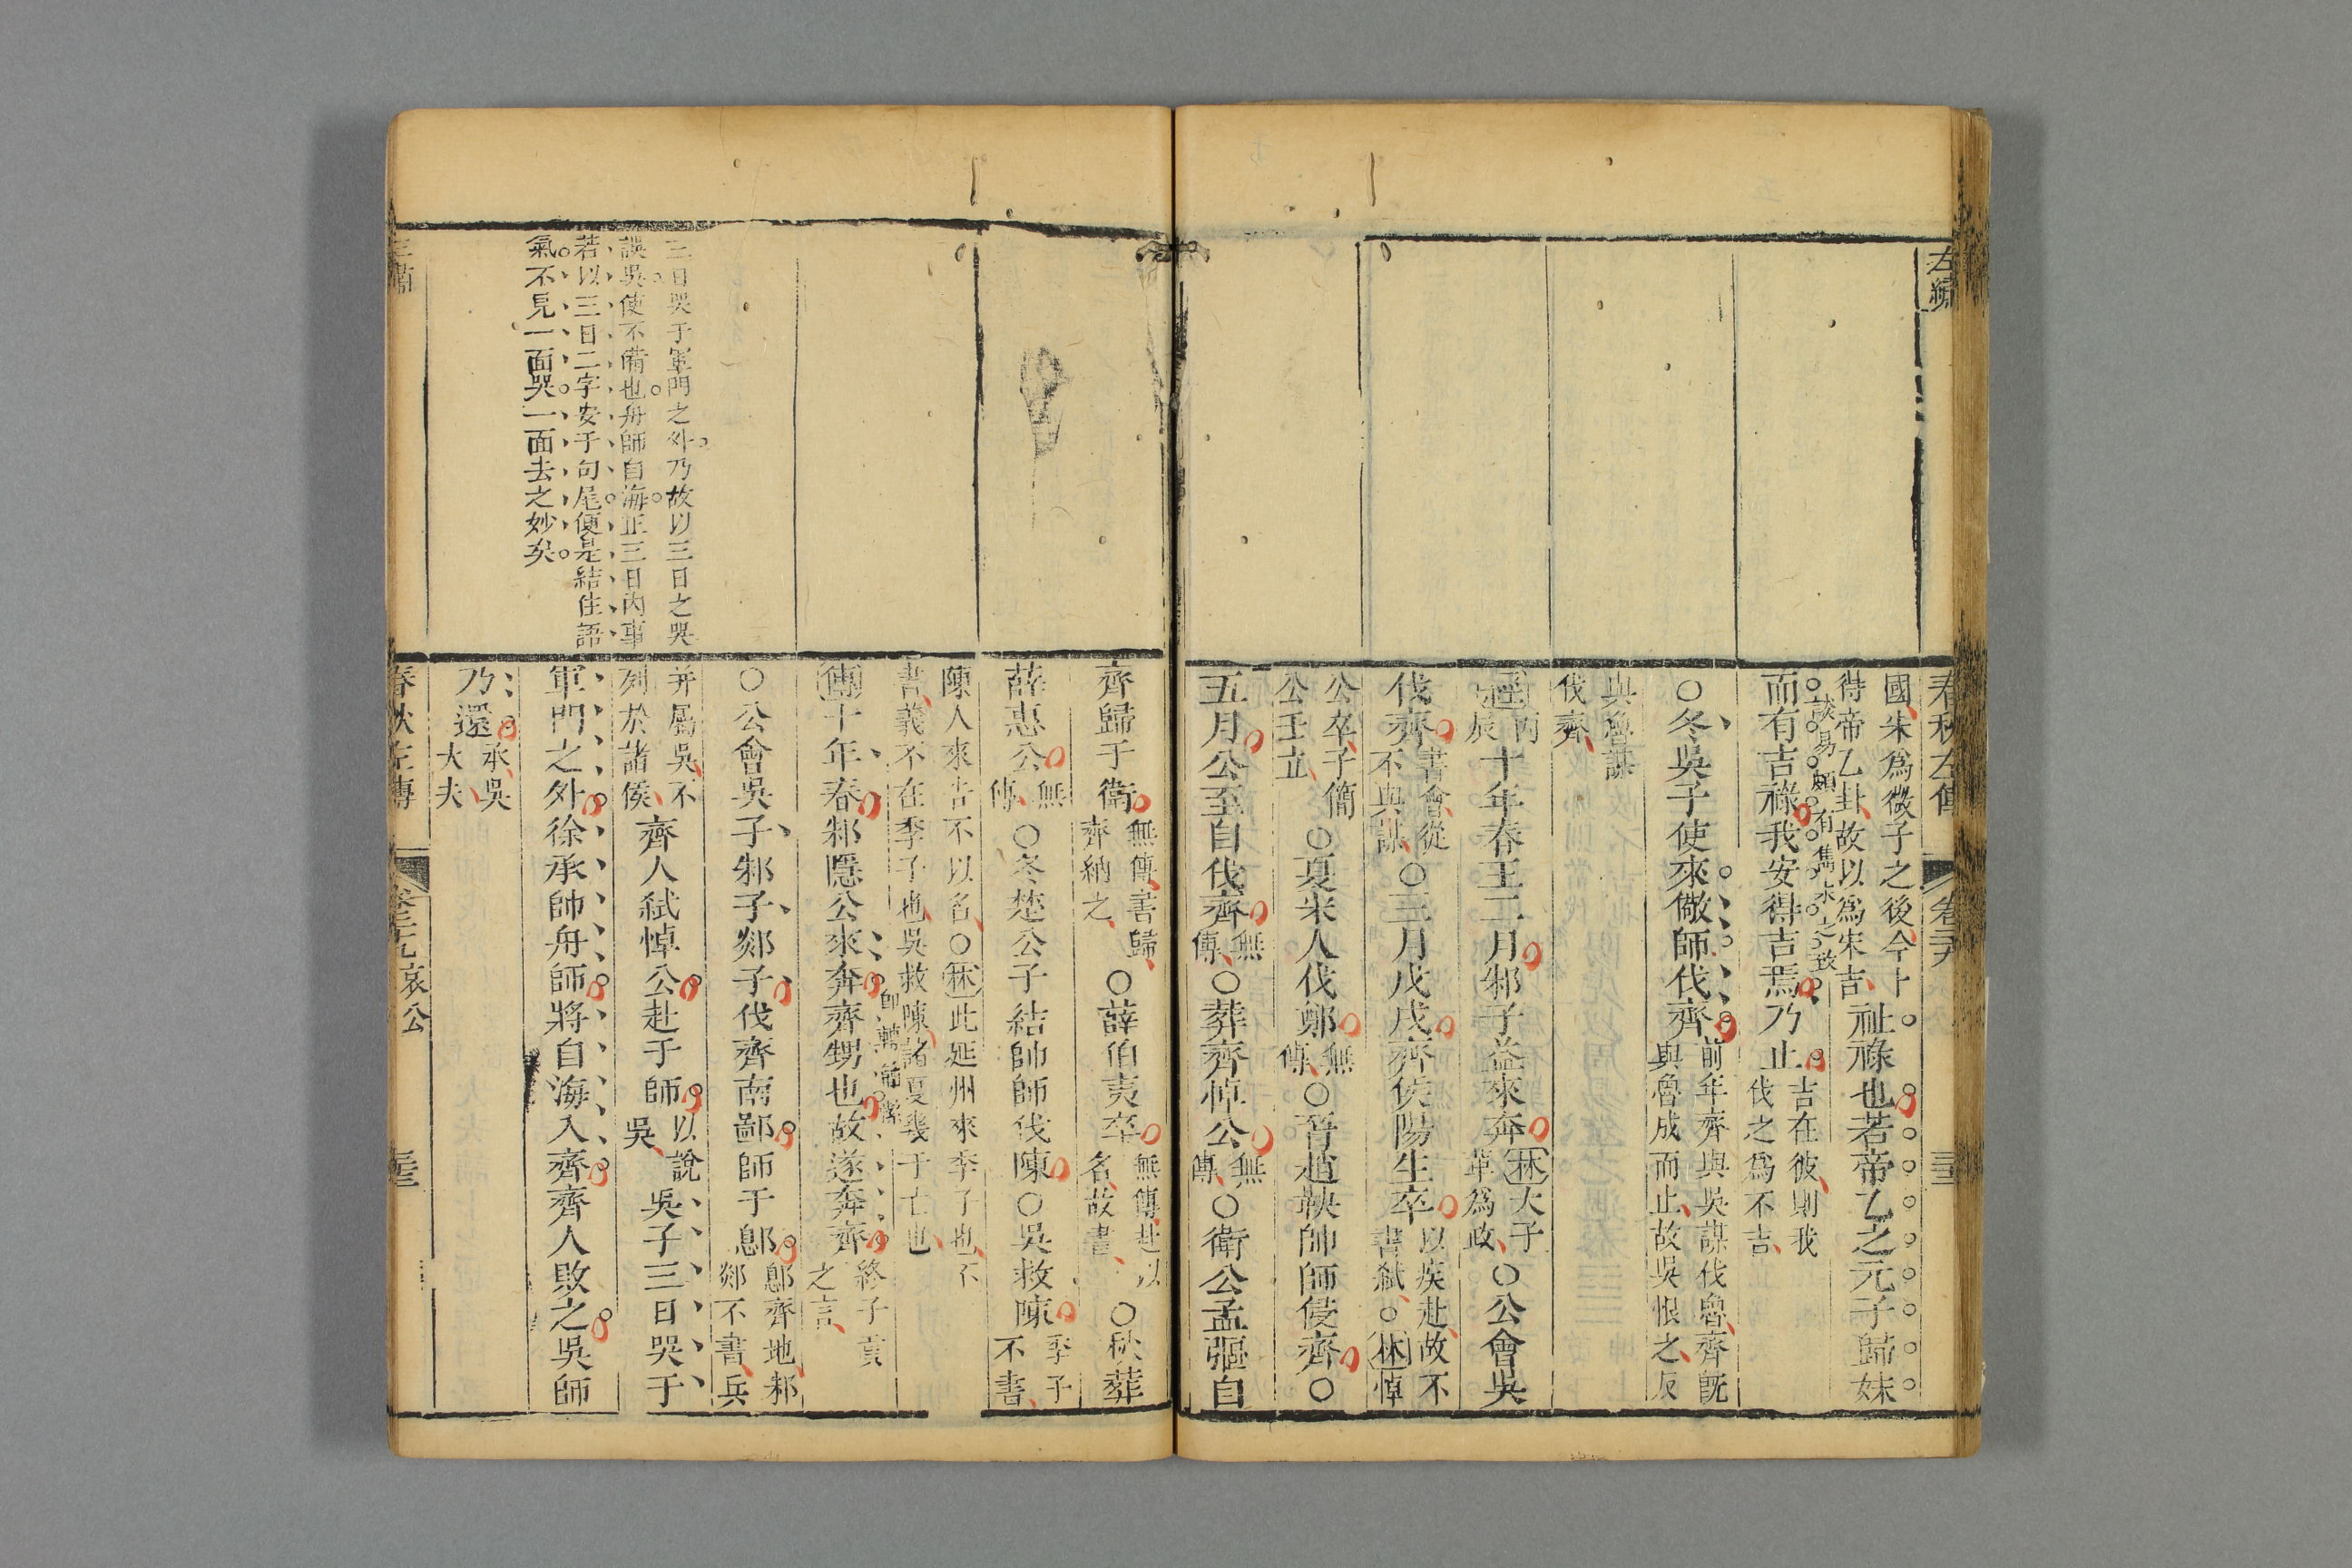 左繡
春秋左傳 卷二十九 三十三
國宋為微子之後今卜
得帝乙卦故以為宋吉
祉祿也若帝乙之元子歸妹
談易頗有雋永之致
而有吉祿我安得吉焉乃止
吉在彼則我
伐之為不吉
○冬吳子使來儆師伐齊
前年齊與吳謀伐魯齊旣
與魯成而止故吳恨之反
與魯謀
伐齊
經丙辰十年春王二月邾子益來奔
林大子
革為政
○公會吳
伐齊
書會從
不與謀
○三月戊戌齊侯陽生卒
以疾赴故不
書弒○林悼
公卒子簡
公壬立
○夏宋人伐鄭
無傳
○晉趙鞅帥師侵齊○
五月公至自伐齊
無傳
○葬齊悼公
無傳
○衛公孟彄自
齊歸于衛
無傳書歸
齊納之
○薛伯夷卒
無傳赴以
名故書
○秋葬
薛惠公
無傳
○冬楚公子結帥師伐陳○吳救陳
季子
不書
陳人來告不以名○林此延州來季子也不
書義不在季子也吳救陳諸夏幾于亡也
傳十年春邾隱公來奔齊甥也故遂奔齊
終子貢
之言
○公會吳子邾子郯子伐齊南鄙師于鄎
鄎齊地邾
郯不書兵
并屬吳不
列於諸侯
齊人弒悼公赴于師
以說
吳
吳子三日哭于
軍門之外徐承帥舟師將自海入齊齊人敗之吳師
乃還
承吳
大夫
三日哭于軍門之外乃故以三日之哭
誤吳使不備也舟師自海正三日內事
若以三日二字安于句尾便是結住語
氣不見一面哭一面去之妙矣
春秋左傳 卷二十九哀公 三十三